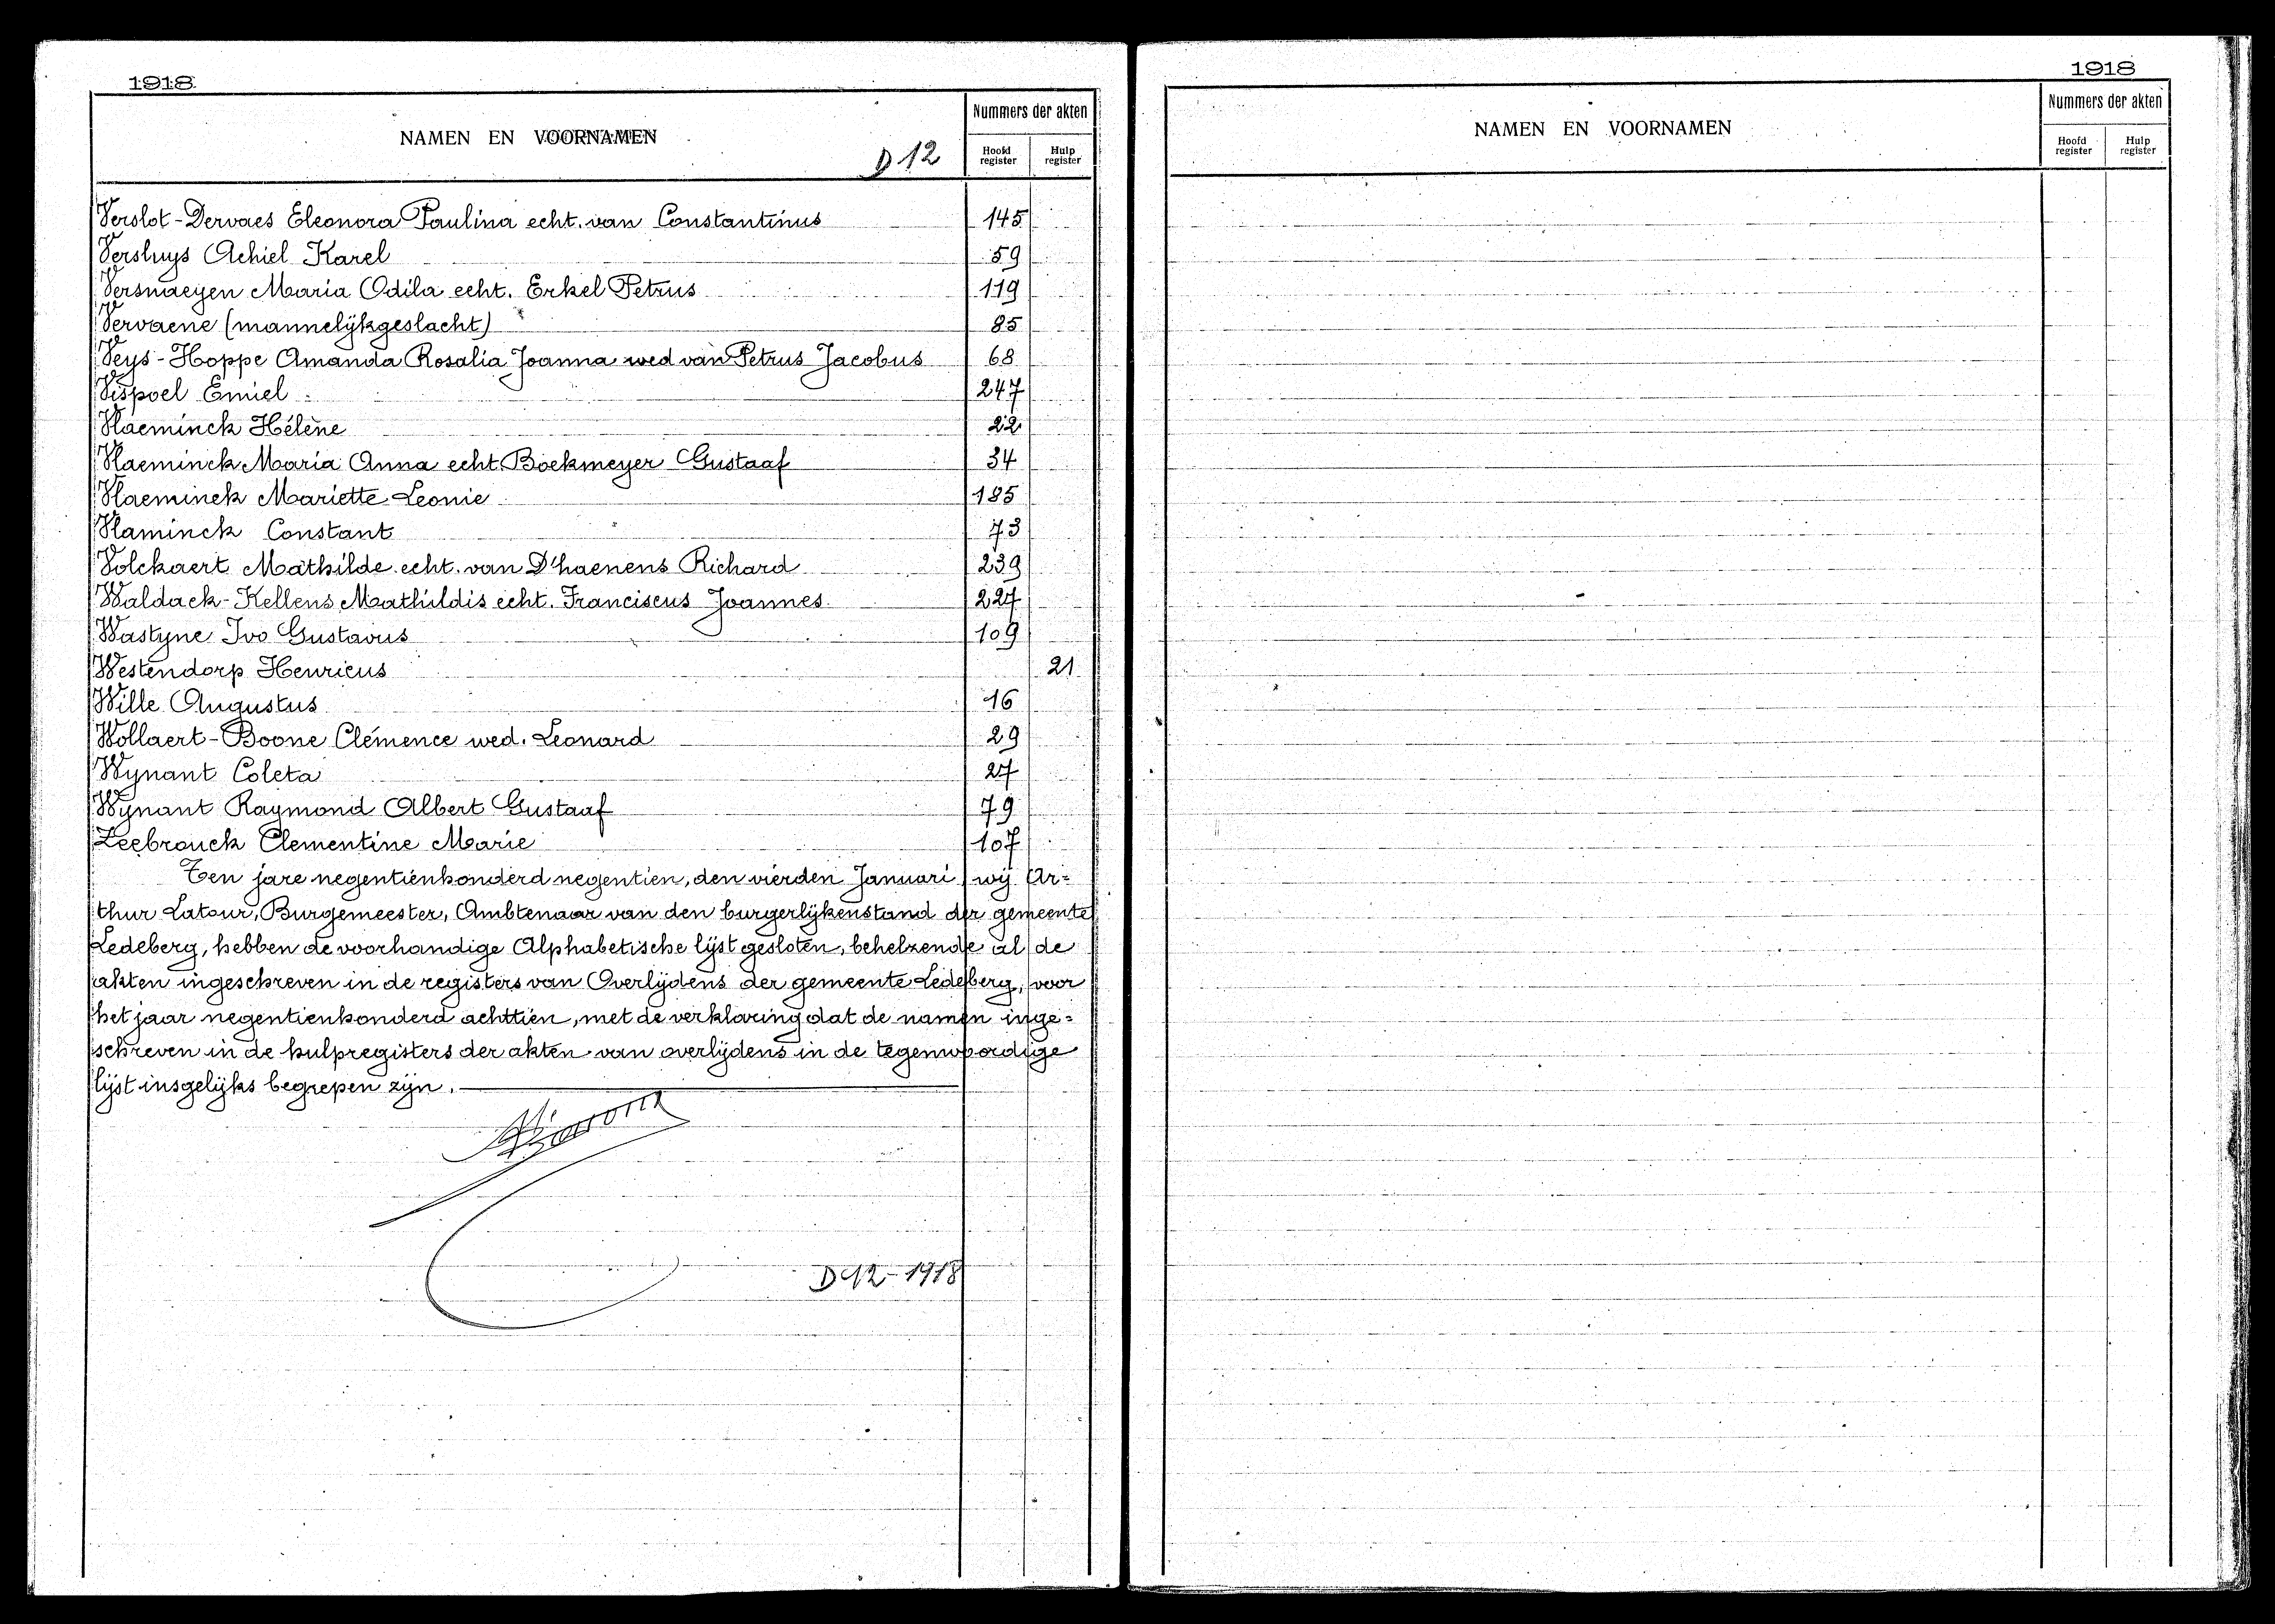 1918
NAMEN EN VOORNAMEN
D 12
Nummers der akten
Hoofd register
Hulp register
Verslot-Dervaes Eleonora Paulina echt. van Constantinus 145
Versluys Achiel Karel 59
Versnaeyen Maria Odila echt. Erkel Petrus 119
Vervaene (mannelijkgeslacht) 85
Veys-Hoppe Amanda Rosalia Joanna wed van Petrus Jacobus 68
Vispoel Emiel 247
Vlaeminck Hélène 22
Vlaeminck Maria Anna echt. Boekmeyer Gustaaf 34
Vlaeminck Mariette Leonie 185
Vlaminck Constant 73
Volckaert Mathilde echt. van D'haenens Richard 239
Waldack-Kellens Mathildis echt. Franciscus Joannes 227
Wastyne Ivo Gustavus 109
Westendorp Henricus 21
Wille Augustus 16
Wollaert-Boone Clémence wed. Leonard 29
Wynant Coleta 27
Wynant Raymond Albert Gustaaf 79
Zeebrouck Clementine Marie 107
Ten jare negentienhonderd negentien, den vierden Januari wij Ar=
thur Latour, Burgemeester, Ambtenaar van den burgerlijkenstand der gemeente
Ledeberg, hebben de voorhandige Alphabetische lijst gesloten, behelzende al de
akten ingeschreven in de registers van Overlijdens der gemeente Ledeberg, voor
het jaar negentienhonderd achttien, met de verklaring dat de namen inge=
schreven in de hulpregisters der akten van overlijdens in de tegenwoordige
lijst insgelijks begrepen zijn.
D 12-1918
1918
NAMEN EN VOORNAMEN
Nummers der akten
Hoofd register
Hulp register